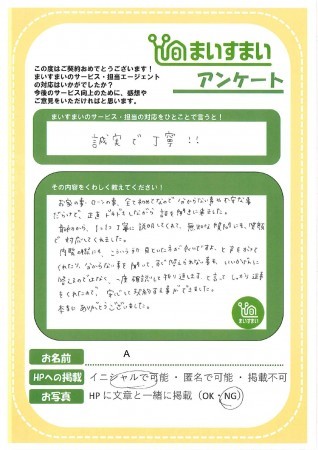 まいすまい
アンケート
この度はご契約おめでとうございます！
まいすまいのサービス・担当エージェント
の対応はいかがでしたか？
今後のサービス向上のために、感想や
ご意見をいただければと思います。
まいすまいのサービス・担当をひとことで言うと！
誠実で丁寧!!
その内容をくわしく教えてください！
お家の事、ローンの事、全て初めてなので分からない事や不安な事
だらけで、正直ドキドキしながら話を聞きに来ました。
とても丁寧に説明してくれて、
で対応してくれました。
内覧時にも、こういう所見といた方が良いですよ、と
くれたり、分からない事を聞いて、
一度確認して折り返します と言って しっかり返事
をくれたので、安心して契約する事ができました。
本当にありがとうございました。
まいすまい
お名前 A
HPへの掲載 イニシャルで可能・匿名で可能・掲載不可
お写真 HPに文章と一緒に掲載（OK・NG）